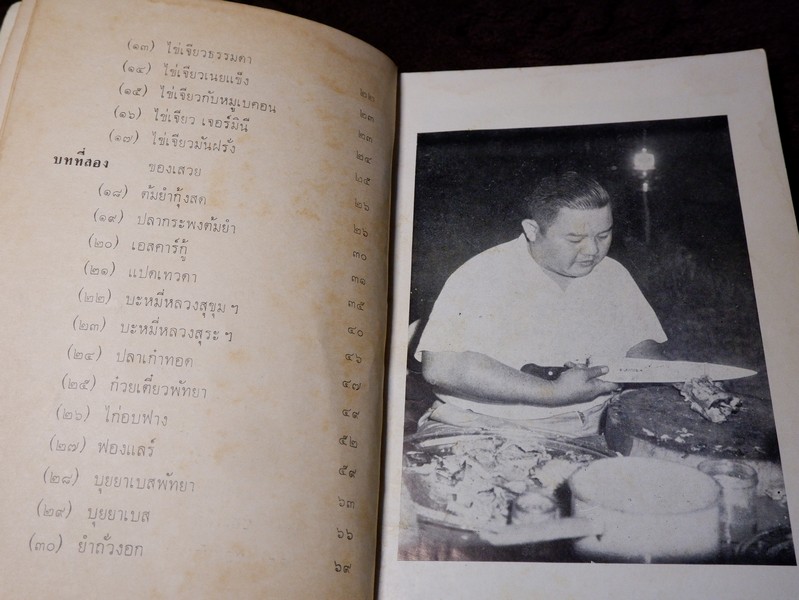 (๑๓) ไข่เจียวธรรมดา ๒๒
(๑๔) ไข่เจียวเนยแข็ง ๒๓
(๑๕) ไข่เจียวกับหมูเบคอน ๒๓
(๑๖) ไข่เจียว เจอร์มินี ๒๔
(๑๗) ไข่เจียวมันฝรั่ง ๒๕
บทที่สอง ของเสวย ๒๖
(๑๘) ต้มยำกุ้งสด ๒๖
(๑๙) ปลากระพงต้มยำ ๓๐
(๒๐) เอสคาร์กู้ ๓๑
(๒๑) แปดเทวดา ๓๕
(๒๒) บะหมี่หลวงสุขุม ฯ ๔๐
(๒๓) บะหมี่หลวงสุระ ฯ ๔๖
(๒๔) ปลาเก๋าทอด ๔๗
(๒๕) ก๋วยเตี๋ยวพัทยา ๔๙
(๒๖) ไก่อบฟาง ๕๒
(๒๗) ฟองแลร์ ๕๙
(๒๘) บุยยาเบสพัทยา ๖๓
(๒๙) บุยยาเบส ๖๖
(๓๐) ยำถั่วงอก ๖๙